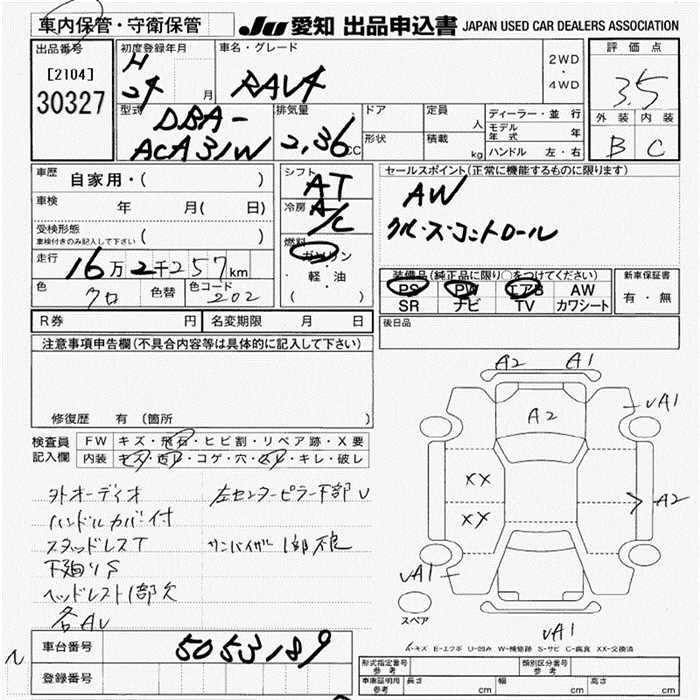 車内保管・守衛保管
JU 愛知 出品申込書 JAPAN USED CAR DEALERS ASSOCIATION
出品番号
[2104]
30327
初度登録年月
H
24 月
車名・グレード
RAV4
2WD
・
4WD
評価点
3.5
外装 内装
B C
型式
DBA-
ACA31W
排気量
2,36 cc
ドア
形状
定員 人
積載 kg
ディーラー・並行
モデル年式 年
ハンドル 左・右
車歴
自家用・( )
車検 年 月( 日)
受検形態
車検付きのみ記入して下さい ( )
走行
16万2千257km
色 クロ 色替 色コード 202
シフト
AT
冷房
A/C
燃料
ガソリン
・
軽・油
( )
セールスポイント(正常に機能するものに限ります)
AW
クルーズ・コントロール
装備品(純正品に限り○をつけてください)
PS PW エアB AW
SR ナビ TV カワシート
新車保証書
有・無
R券 円 名変期限 月 日
後日品
注意事項申告欄(不具合内容等は具体的に記入して下さい)
修復歴 有 (箇所 )
検査員
記入欄
FW キズ・飛石・ヒビ割・リペア跡・X要
内装 キズ・汚レ・コゲ・穴・スレ・キレ・破レ
外オーディオ 左センターピラー下部U
ハンドルカバー付
スタッドレスT サンバイザー1部不良
下廻りS
ヘッドレスト1部欠
各AU
A2 A1
A2
UA1
XX
XX
A2
UA1
UA1
スペア
A-キズ E-エクボ U-凹み W-補修跡 S-サビ C-腐食 XX-交換済
車台番号 5053189
登録番号
形式指定番号
参考
類別区分番号
参考
車庫証明用
参考
長さ cm 幅 cm 高さ cm